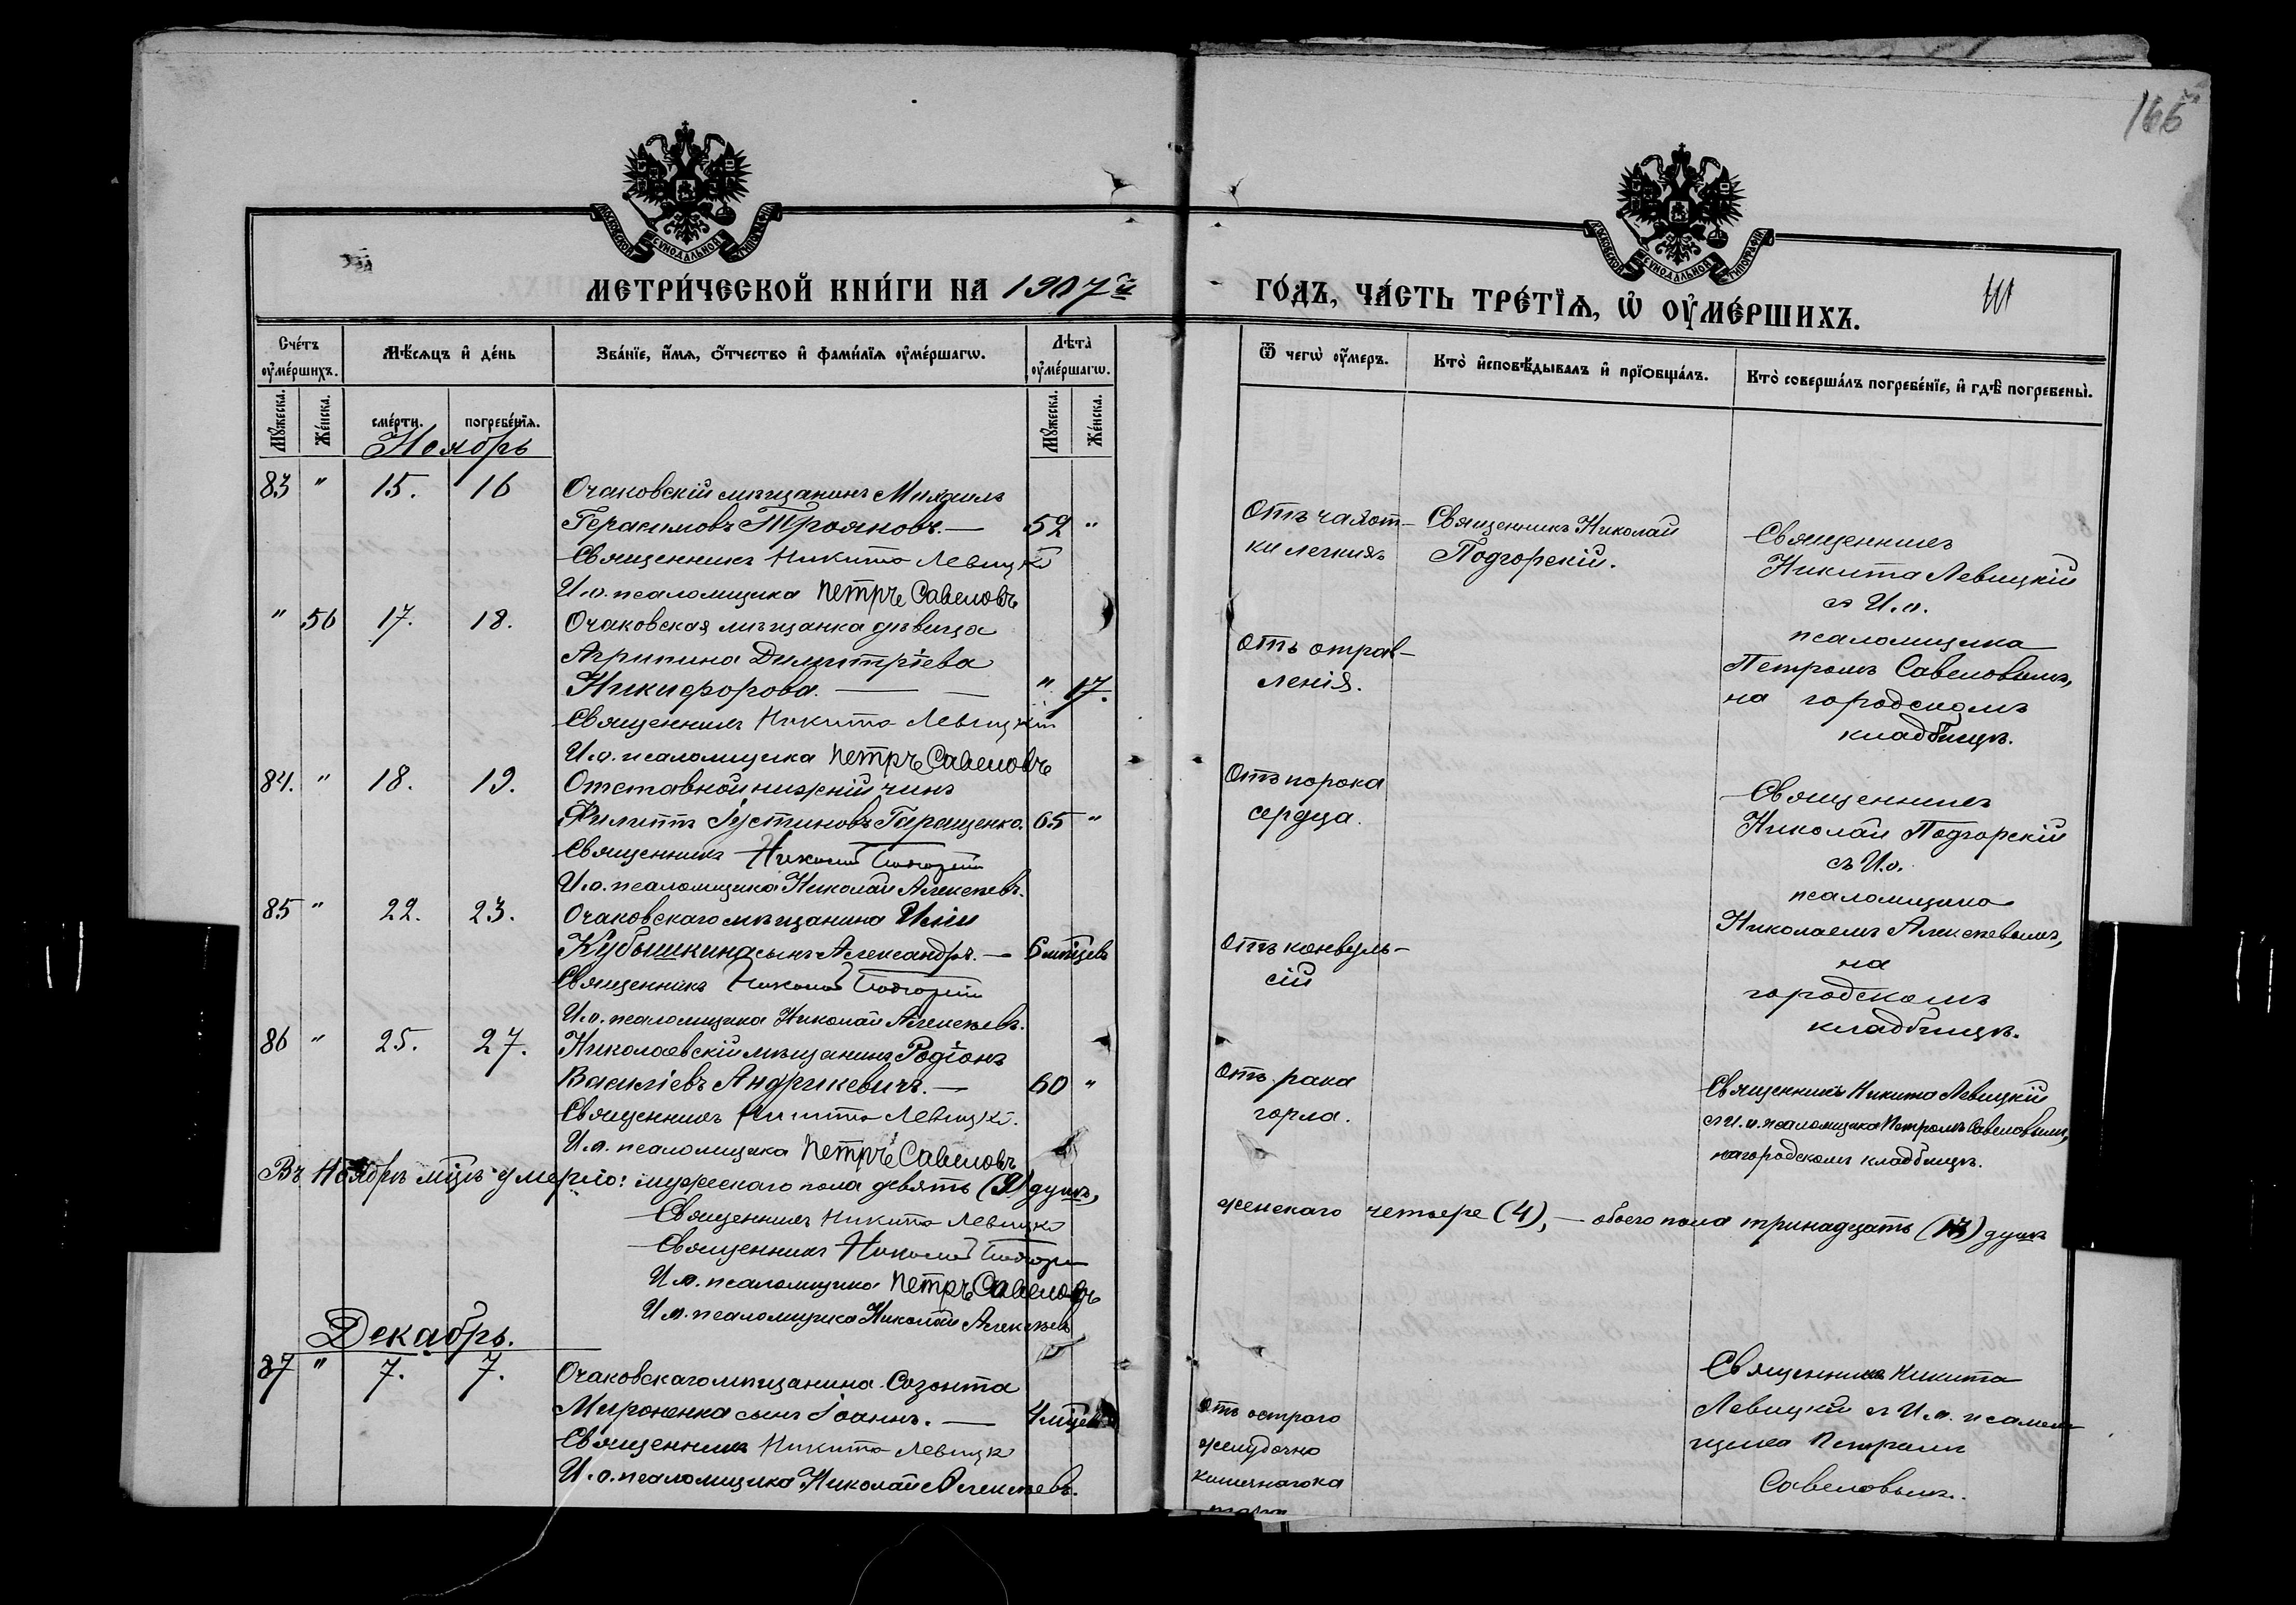 166
МЕТРИ́ЧЕСКОЙ КНИ́ГИ НА 1907й
ГО́ДЪ, ЧА́СТЬ ТРЕ́ТЇѦ, Ѡ҆ ОУ҆МЕ́РШИХЪ.
Сче́тъ оу҆ме́ршихъ.
Мѣ́сѧцъ и҆ де́нь
Зва́нїе, и҆́мѧ, ѻ҆́тчество и҆ фами́лїѧ оу҆ме́ршагѡ.
Лѣта̀ оу҆ме́ршагѡ.
Ѿ чегѡ̀ оу҆́меръ.
Кто̀ и҆сповѣ́дывалъ и҆ прїѻбща́лъ.
Кто̀ соверша́лъ погребе́нїе, и҆ гдѣ̀ погребены̀.
Мꙋ́жеска.
Же́нска.
сме́рти.
погребе́нїѧ.
Мꙋ́жеска.
Же́нска.
Ноябрь
83 " 15. 16 Очаковскій мѣщанинъ Михаилъ
Герасимовъ Трояновъ. — 52 "
Священникъ Никита Левицкій
И.о. псаломщика Петръ Савеловъ
Отъ чахот-
ки легкихъ
Священникъ Николай
Подгорскій.
Священникъ
Никита Левицкій
съ И.о.
псаломщика
Петромъ Савеловымъ,
на городскомъ
кладбищѣ.
" 56 17. 18. Очаковская мѣщанка дѣвица
Агрипина Димитріева
Никифорова — " 17.
Священникъ Никита Левицкій
И.о. псаломщика Петръ Савеловъ
Отъ отрав-
ленія.
84. " 18. 19. Отставной нижній чинъ
Филиппъ Іустиновъ Гаращенко. 65 "
Священникъ Николай Подгорскій
И.о. псаломщика Николай Алексѣевъ.
Отъ порока
сердца.
Священникъ
Николай Подгорскій
съ И.о.
псаломщика
Николаемъ Алексѣевымъ,
на
городскомъ
кладбищѣ.
85 " 22. 23. Очаковскаго мѣщанина Иліи
Кубышкина сынъ Александръ. — 6 мѣцевъ
Священникъ Николай Подгорскій
И.о. псаломщика Николай Алексѣевъ.
Отъ конвуль-
сій
86 " 25. 27. Николаевскій мѣщанинъ Родіонъ
Василіевъ Андрикевичъ. — 60 "
Священникъ Никита Левицкій.
И.о. псаломщика Петръ Савеловъ
Отъ рака
горла.
Священникъ Никита Левицкій
съ И.о. псаломщика Петромъ Савеловымъ,
на городскомъ кладбищѣ.
Въ Ноябрѣ мѣцѣ умерло: мужескаго пола девять (9) душъ,
женскаго четыре (4), — обоего пола тринадцать (13) душъ
Священникъ Никита Левицкій
Священникъ Николай Подгорскій
И.о. псаломщика Петръ Савеловъ
И.о. псаломщика Николай Алексѣевъ
Декабрь.
87 " 7. 7. Очаковскаго мѣщанина Созонта
Мироненка сынъ Іоаннъ. — 4 мѣцевъ
Священникъ Никита Левицкій
И.о. псаломщика Николай Алексѣевъ.
Отъ остраго
желудочно
кишечнаго ка
Священникъ Никита
Левицкій съ И.о. псалом
щика Петромъ
Савеловымъ.